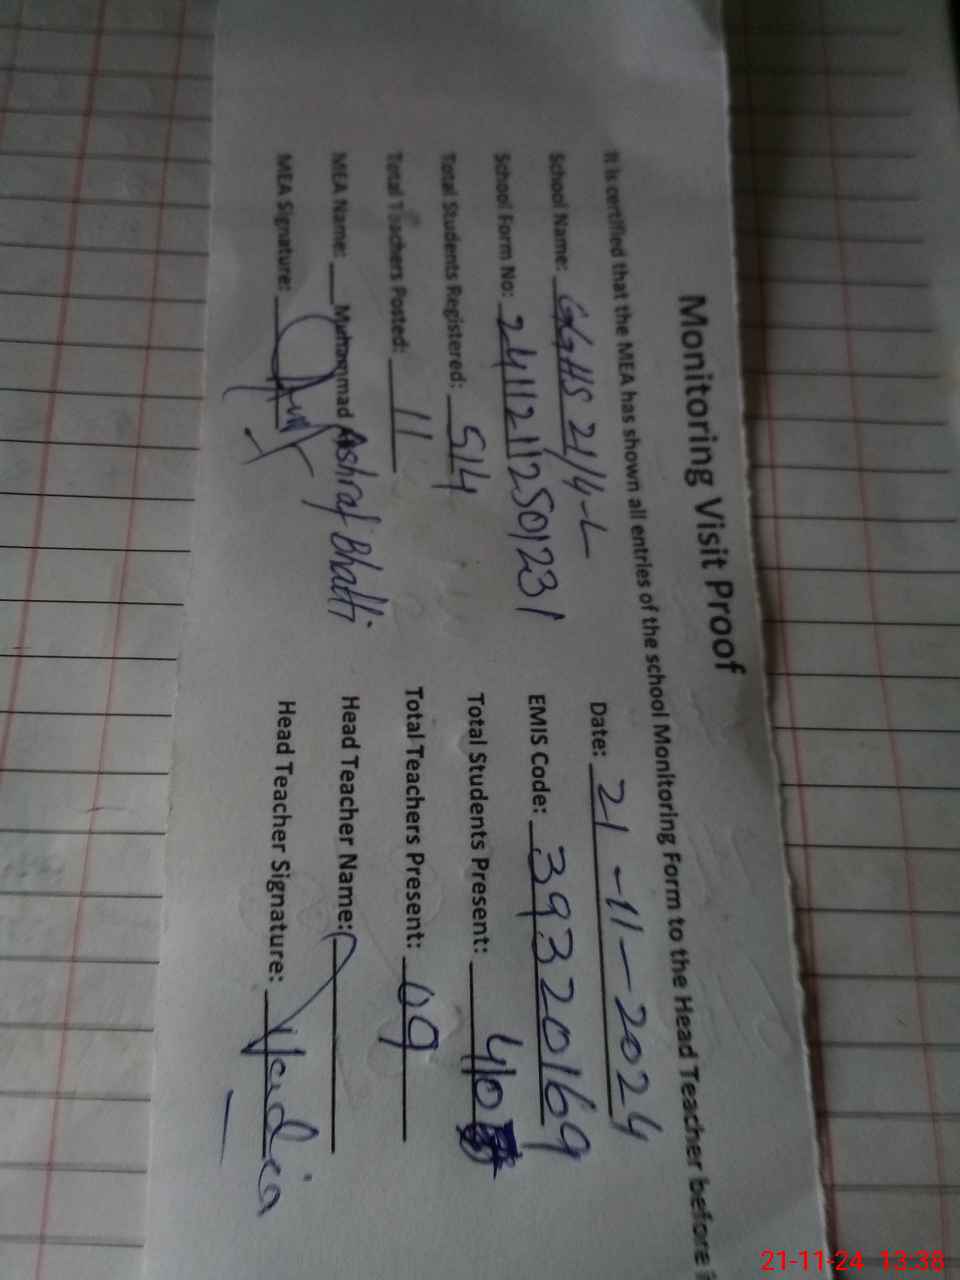 Monitoring Visit Proof
It is certified that the MEA has shown all entries of the school Monitoring Form to the Head Teacher before
School Name: GGHS 21/4-L Date: 21-11-2024
School Form No: 24112112501231 EMIS Code: 39320169
Total Students Registered: 514 Total Students Present: 40
Total Teachers Posted: 11 Total Teachers Present: 09
MEA Name: Muhammad Ashraf Bhatti Head Teacher Name:
MEA Signature: Head Teacher Signature:
21-11-24 13:38